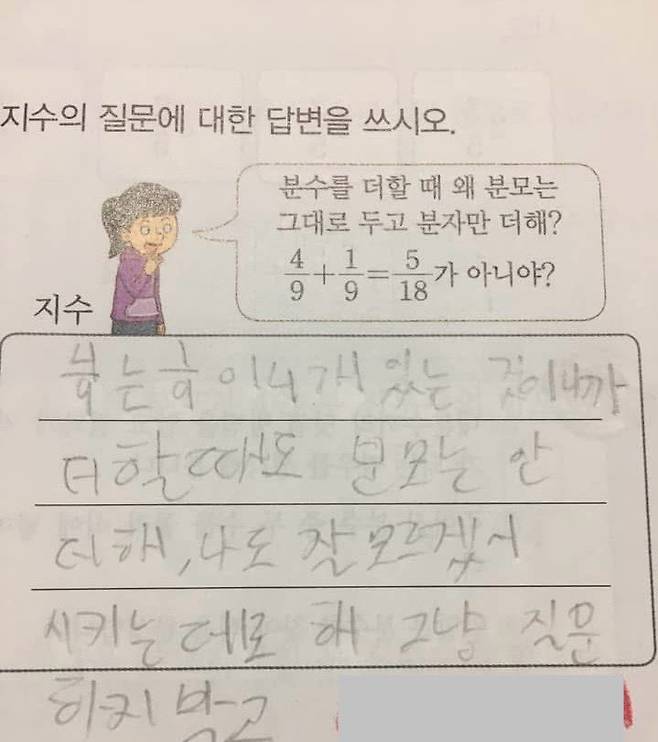 지수의 질문에 대한 답변을 쓰시오.
분수를 더할 때 왜 분모는
그대로 두고 분자만 더해?
4/9+1/9=5/18가 아니야?
지수
4/9는 1/9이 4개 있는 것이니까
더할때도 분모는 안
더해, 나도 잘 모르겠서
시키는데로 해 그냥 질문
하지 말고